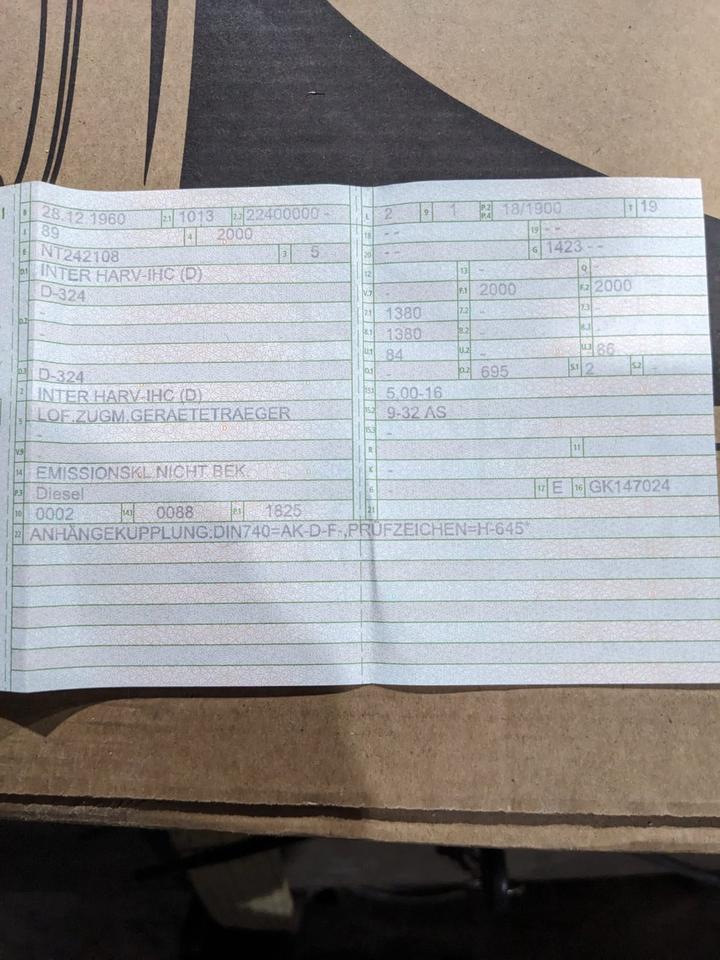 B 28.12.1960 2.1 1013 2.2 22400000 -
J 89 4 2000
E NT242108 3 5
D.1 INTER HARV-IHC (D)
D-324
D.2 -
-
D.3 D-324
2 INTER HARV-IHC (D)
5 LOF.ZUGM.GERAETETRAEGER
-
V.9
14 EMISSIONSKL.NICHT BEK.
P.3 Diesel
10 0002 14.1 0088 P.1 1825
L 2 9 1 P.2 P.4 18/1900 T 19
18 - - 19 - -
20 - - G 1423 - -
12 13 - Q
V.7 - F.1 2000 F.2 2000
7.1 1380 7.2 - 7.3
8.1 1380 8.2 - 8.3 -
U.1 84 U.2 - U.3 86
O.1 - O.2 695 S.1 2 S.2 -
15.1 5.00-16
15.2 9-32 AS
15.3 -
R - 11
K -
6 - 17 E 16 GK147024
21
22 ANHÄNGEKUPPLUNG:DIN740=AK-D-F-,PRÜFZEICHEN=H-645*